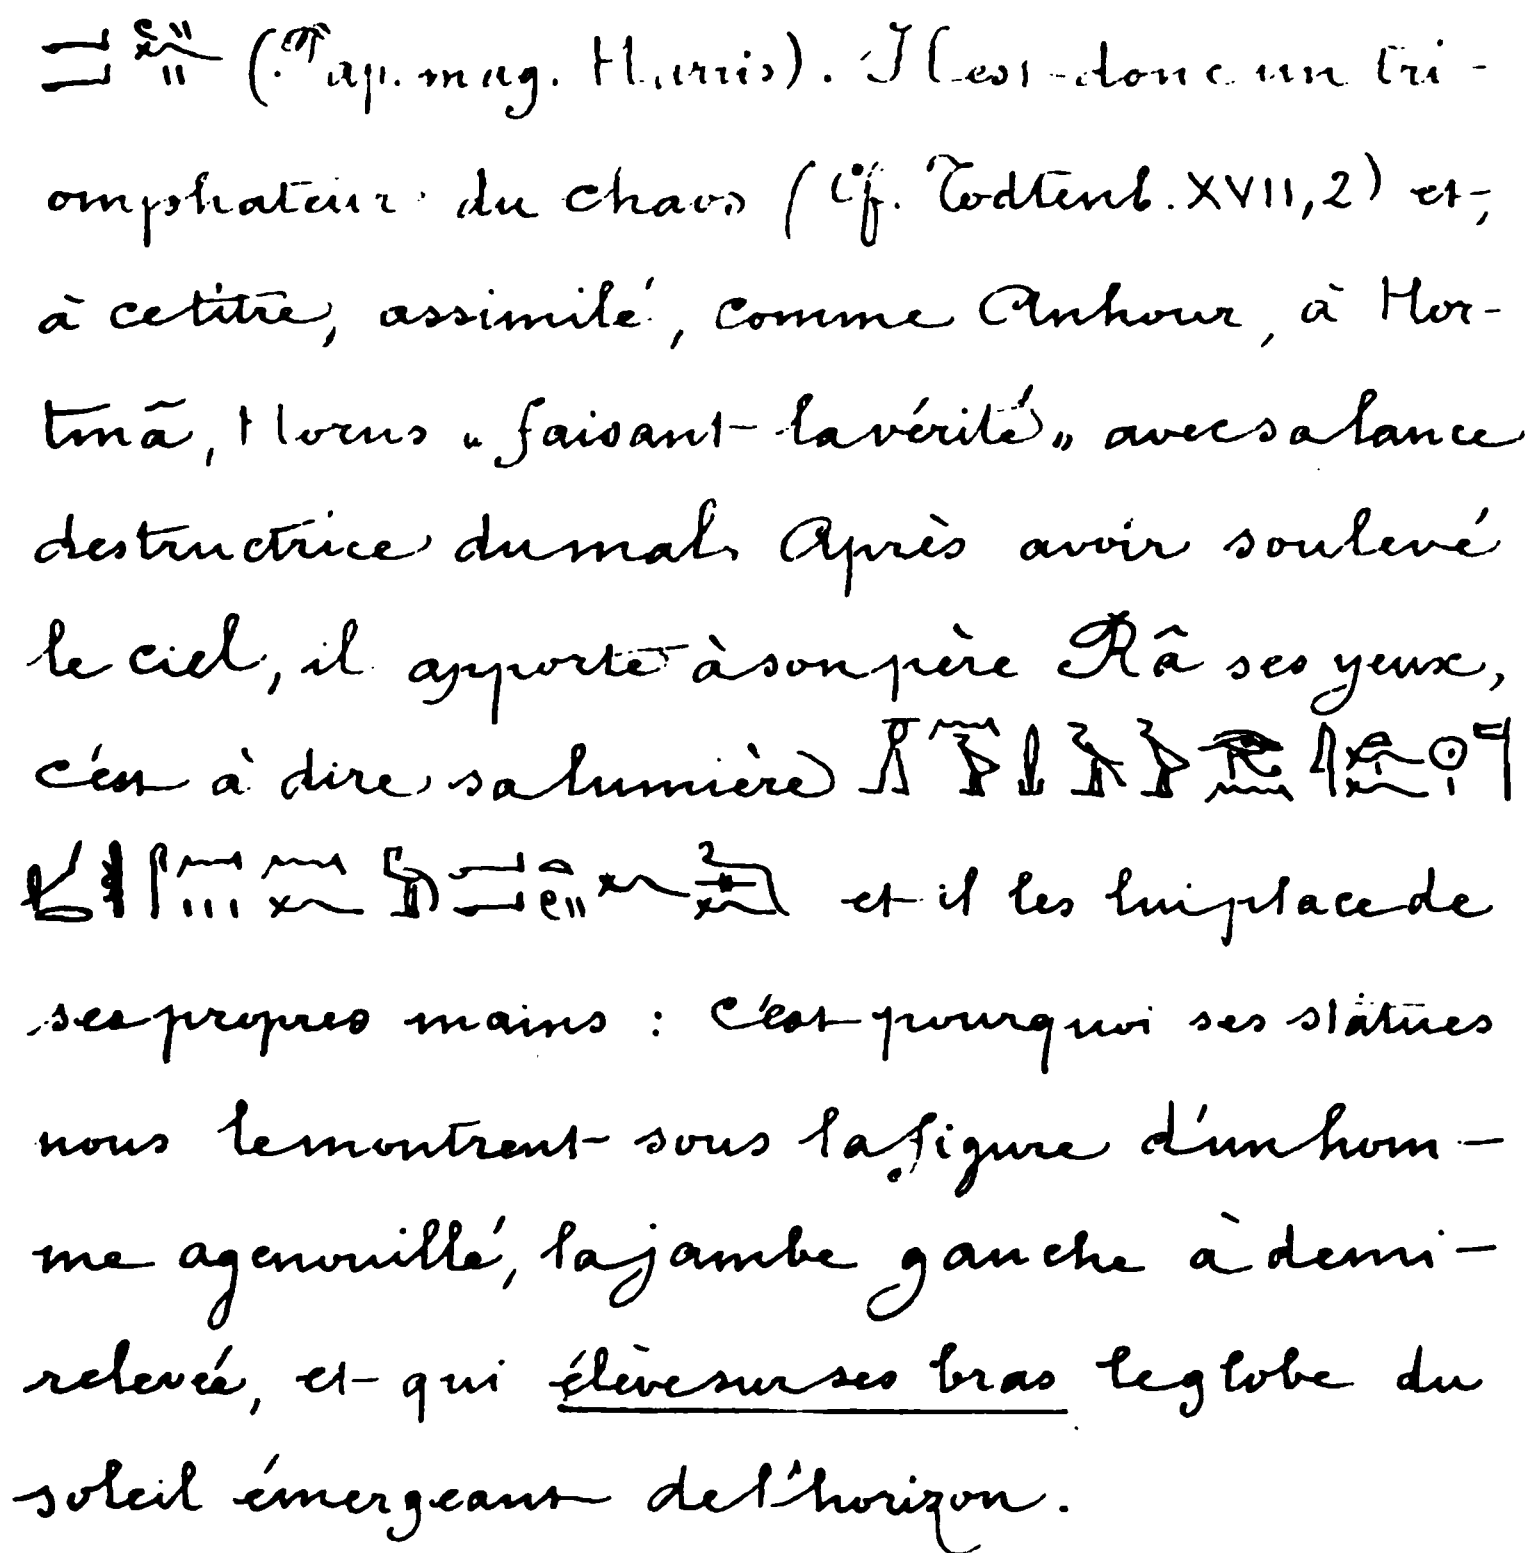 (Pap. mag. Harris). Il est donc un tri-
omphateur du chaos (Cf. Todtenb. XVII, 2) et,
à ce titre, assimilé, comme Anhour, à Hor-
tmã, Horus „ faisant la vérité „ avec sa lance
destructrice du mal. Après avoir soulevé
le ciel, il apporte à son père Râ ses yeux,
c'est à dire sa lumière
et il les lui place de
ses propres mains : c'est pourquoi ses statues
nous le montrent sous la figure d'un hom-
me agenouillé, la jambe gauche à demi-
relevée, et qui élève sur ses bras le globe du
soleil émergeant de l'horizon.